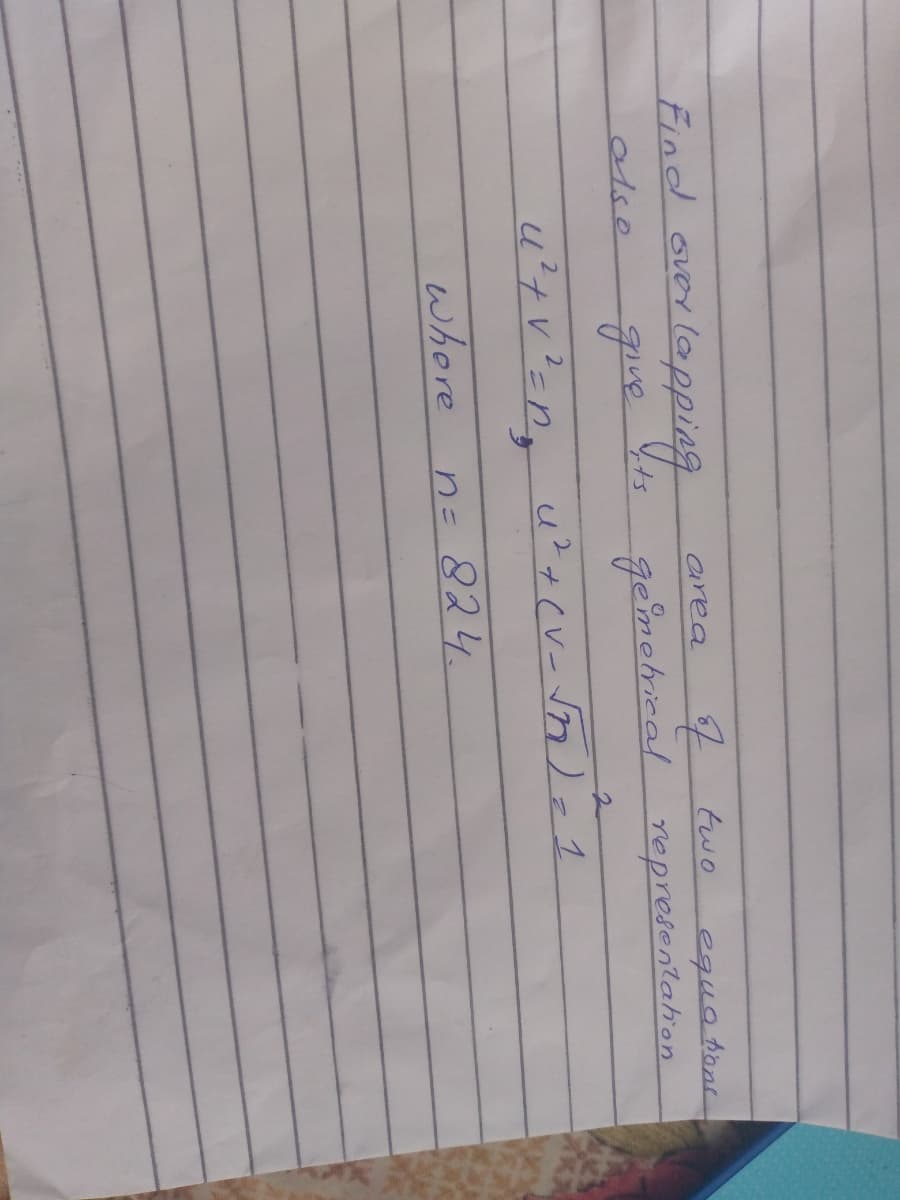 Find overlapping area of two equations
also give its geometrical representation
u² + v² = n, u² + (v - √n)² = 1
where n = 824.